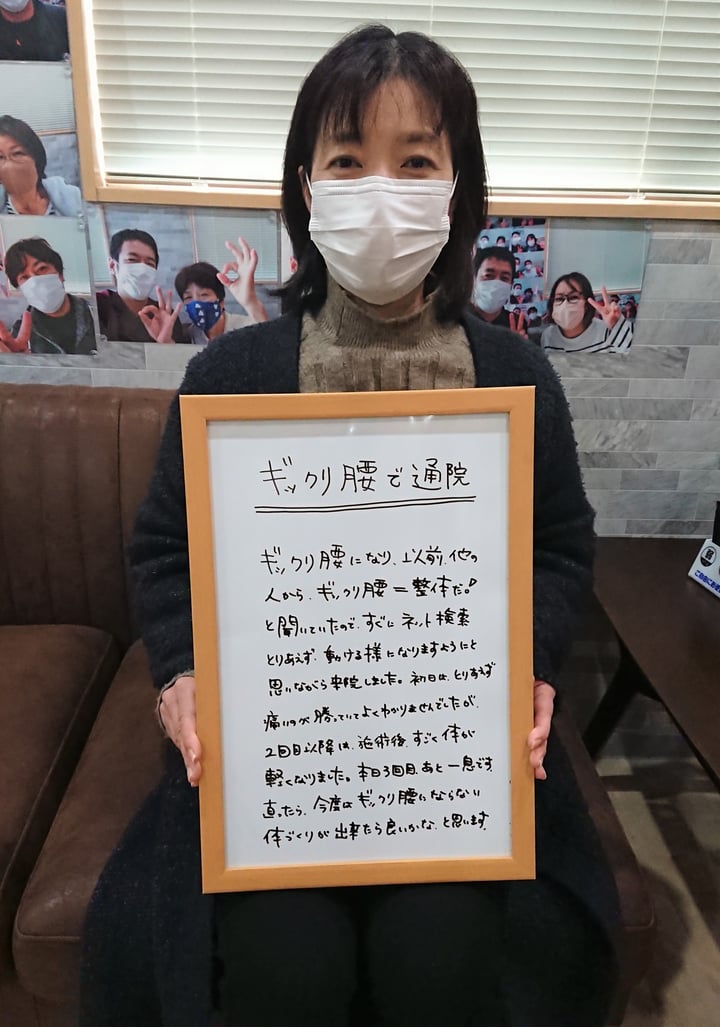 ギックリ腰で通院
ギックリ腰になり、以前、他の
人から、ギックリ腰=整体だ!
と聞いていたので、すぐに ネット検索
とりあえず、動ける様になりますようにと
思いながら来院しました。初日は、とりあえず
痛いのが勝っていてよくわかりませんでしたが、
2回目以降は、施術後、すごく体が
軽くなりました。本日3回目、あと一息です。
直ったら、今度はギックリ腰にならない
体づくりが出来たら良いかな、と思います。